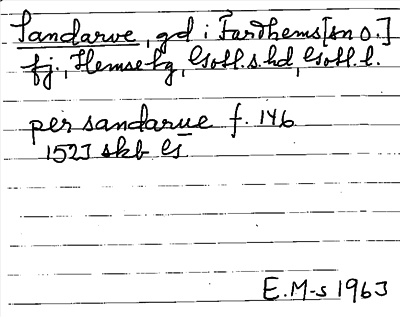 Sandarve, gd i Fardhems [sn o.]
fj., Hemse tg, Gotl. s. hd, Gotl. l.
per sandarue f. 146
1523 skb G
E.M-s 1963